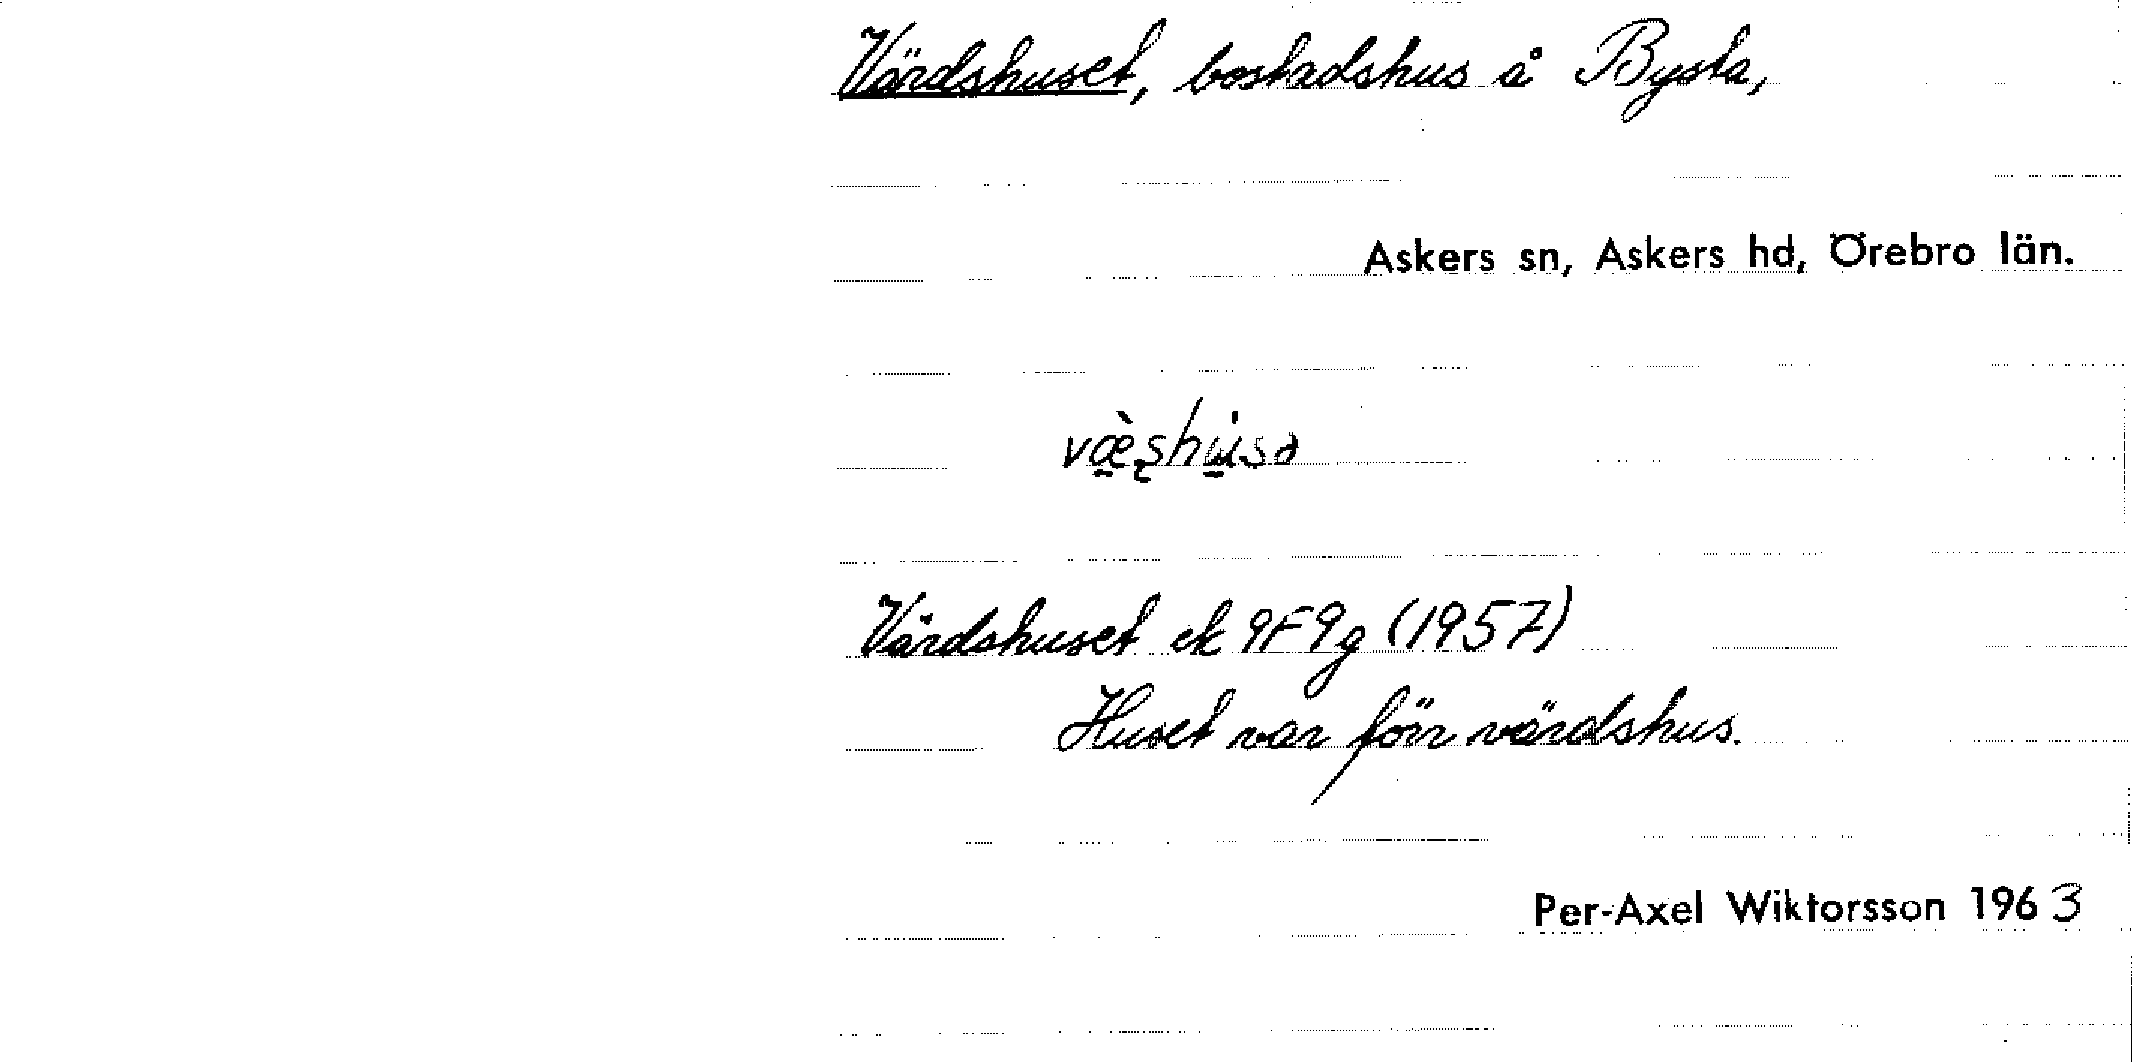 Värdshuset, bostadshus å Bysta,
Askers sn, Askers hd, Örebro län.
væ̀ʂhu̇sə
Värdshuset ek 9F9g (1957)
Huset var förr värdshus.
Per-Axel Wiktorsson 1963